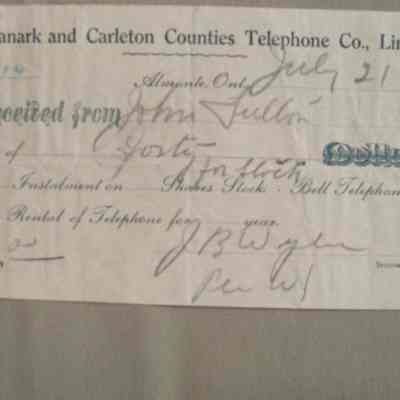 anark and Carleton Counties Telephone Co., Lim
Almonte, Ont July 21
ceived from John Fulton
of Forty Dolla
for stock
Instalment on Shares Stock. Bell Telephon
Rental of Telephone for year.
J B Wylie
Per W